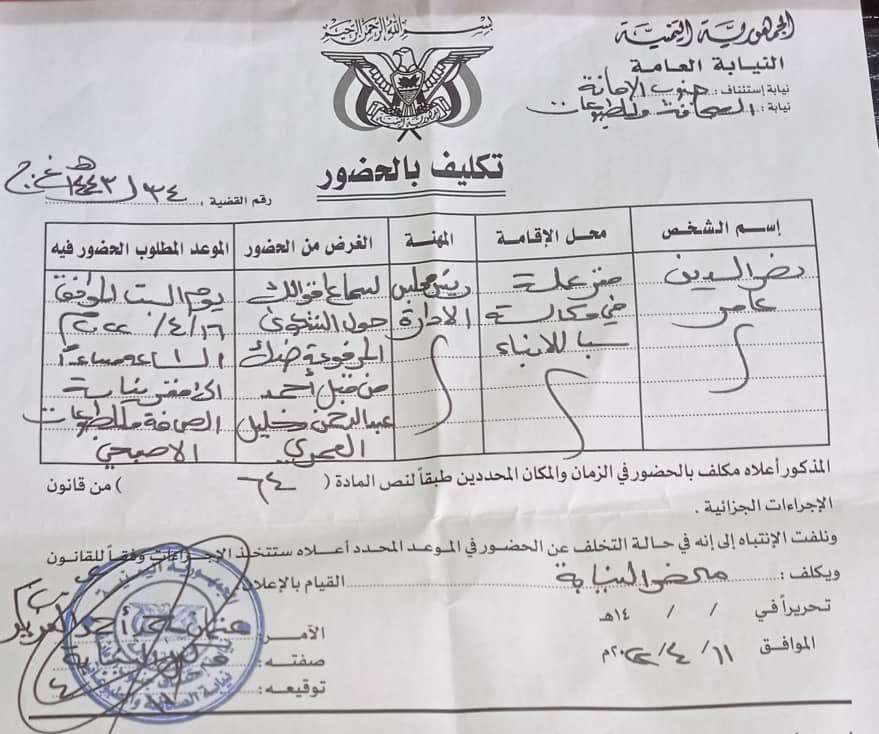 بسم الله الرحمن الرحيم
الجمهورية اليمنية
النيابة العامة
نيابة إستئناف: جنوب الامانة
نيابة: الصحافة والمطبوعات
تكليف بالحضور
رقم القضية: ٣٤ ل ١٤٤٣هـ غ.ج
إسم الشخص
محل الإقامة
المهنة
الغرض من الحضور
الموعد المطلوب الحضور فيه
نصر الدين
عامر
مقر عمله
في وكالة
سبا للانباء
رئيس مجلس
الادارة
لسماع اقوالك
حول الشكوى
المرفوعة ضدك
من قبل أحمد
عبدالرحمن خليل
العمري
يوم السبت الموافق
١٦/٤/٢٠٢٢م
الساعة صباحاً
الى مقر نيابة
الصحافة والمطبوعات
الاصبحي
المذكور أعلاه مكلف بالحضور في الزمان والمكان المحددين طبقاً لنص المادة ( ٦٤ ) من قانون
الإجراءات الجزائية .
ونلفت الإنتباه إلى إنه في حالة التخلف عن الحضور في الموعد المحدد أعلاه ستتخذ الإجراءات وفقاً للقانون
ويكلف: محضر النيابة القيام بالإعلان
تحريراً في / / ١٤هـ
الموافق ١١/٤/٢٠٢٢م
الآمر:
صفته: وكيل النيابة
توقيعه: